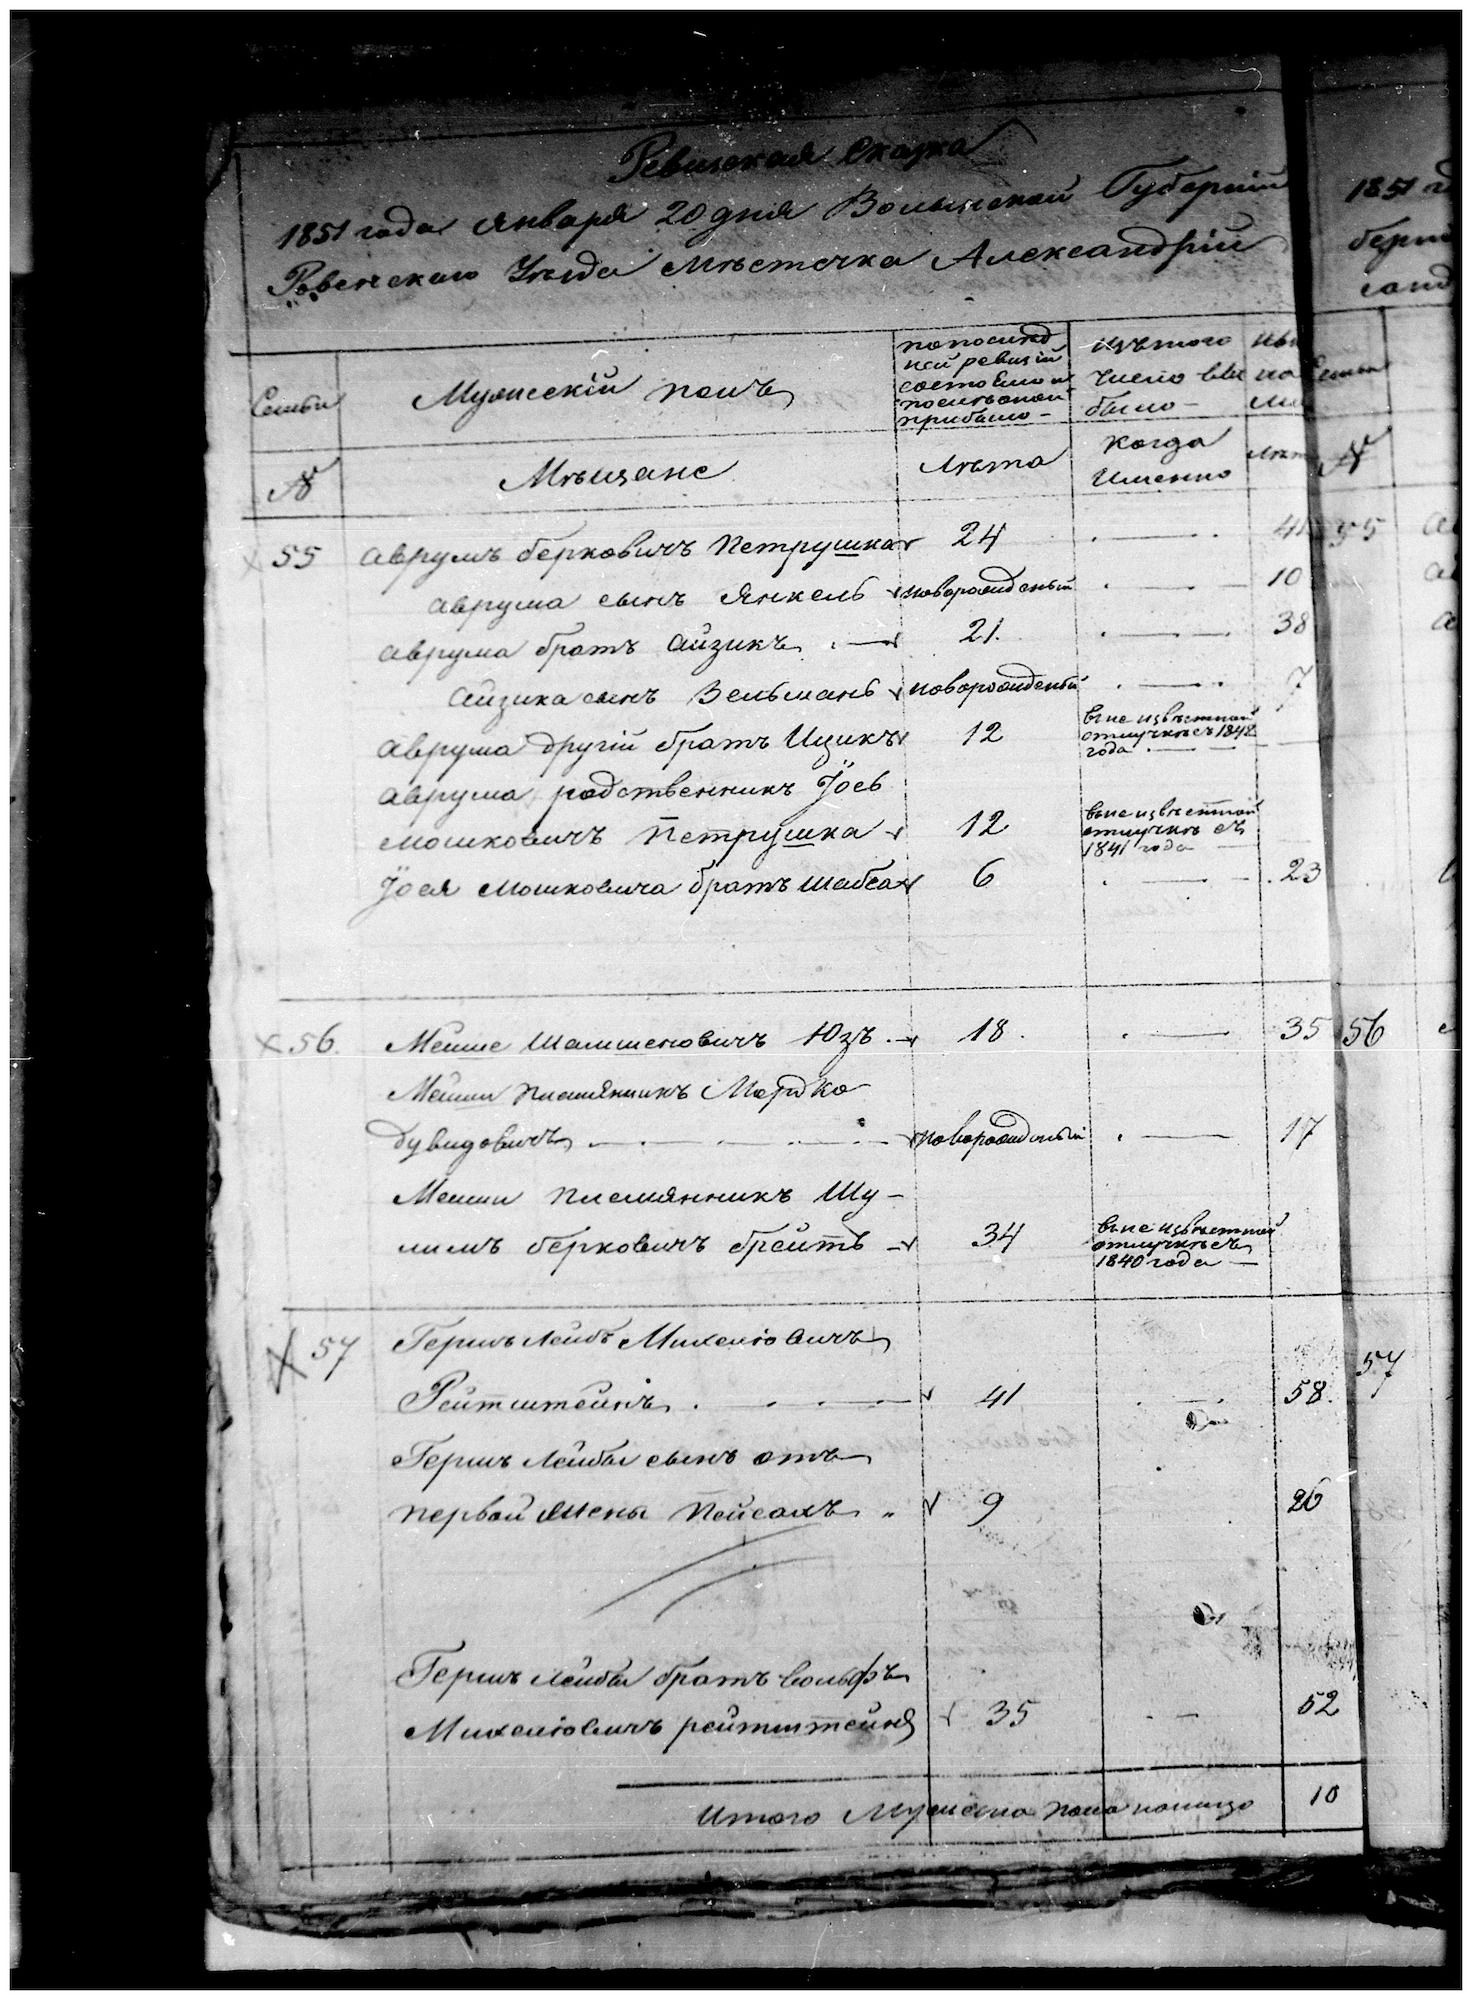 Ревизская Сказка
1851 года Января 20 дня Волынской Губерніи
Ровенскаго Уезда Мѣстечка Александріи
Семьи
Мужескій полъ
по послѣд
ней ревизіи
состояло и
после оной
прибыло —
изъ того
число вы
было —
№
Мѣщане
Лѣта
когда
Именно
Лѣт
55 Аврумъ Берковичъ Петрушка 24 41
Аврума сынъ Янкель новорожденый 10
Аврума братъ Айзикъ 21. 38
Айзика сынъ Зельманъ новорожденый 7
Аврума другій братъ Ицикъ 12 въ неизвѣстной отлучкѣ съ 1848 года
Аврума родственникъ Іось
Мошковичъ Петрушка 12 въ неизвѣстной отлучкѣ съ 1841 года
Іося Мошковича братъ Шабса 6 23
56. Мейше Шлиомовичъ Юзъ 18. 35
Мейши племянникъ Мордко
Дувидовичъ новорожденый 17
Мейши племянникъ Шу-
лимъ Берковичъ Брейтъ 34 въ неизвѣстной отлучкѣ съ 1840 года
57 Гершъ Лейбъ Михелiовичъ
Рейтштейнъ 41 58.
Гершъ Лейбы сынъ отъ
первой жены Пейсахъ 9 26
Гершъ Лейбы братъ Вольфъ
Михелiовичъ Рейтштейнъ 35 52
Итого Мужеска пола налицо 10
1851
55
56
57
№